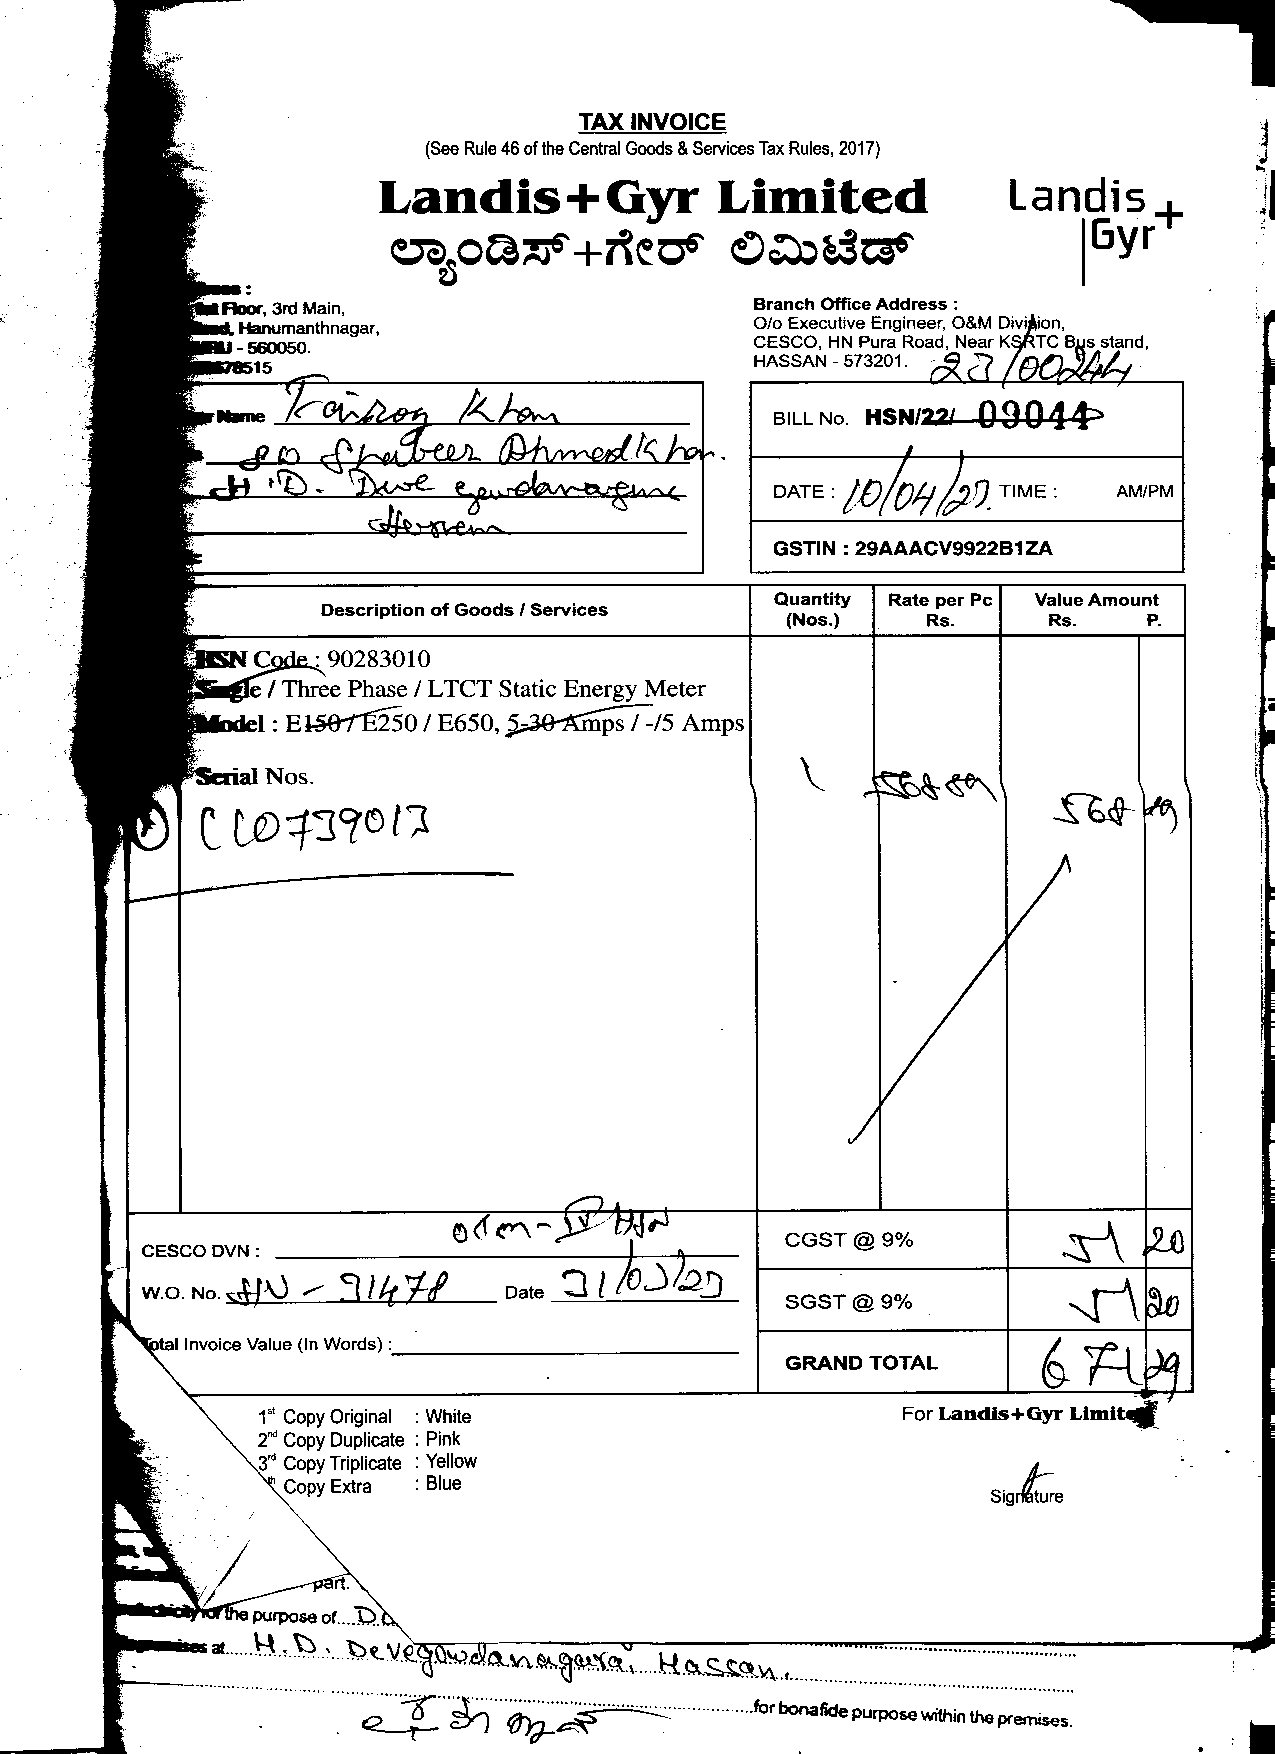 TAX INVOICE
(See Rule 46 of the Central Goods & Services Tax Rules, 2017)
Landis+Gyr Limited
Landis+
Gyr
ಲ್ಯಾಂಡಿಸ್+ಗೇರ್ ಲಿಮಿಟೆಡ್
Floor, 3rd Main,
Hanumanthnagar,
- 560050.
78515
Branch Office Address :
O/o Executive Engineer, O&M Division,
CESCO, HN Pura Road, Near KSRTC Bus stand,
HASSAN - 573201.
23/00244
Name Khan
Shabeer Ahmed Khan.
H.D.
BILL No. HSN/22/ 09044
DATE : 10/04/23. TIME : AM/PM
GSTIN : 29AAACV9922B1ZA
Description of Goods / Services Quantity (Nos.) Rate per Pc Rs. Value Amount Rs. P.
HSN Code : 90283010
Single / Three Phase / LTCT Static Energy Meter
Model : E150 / E250 / E650, 5-30 Amps / -/5 Amps
Serial Nos.
1 568 89 568 89
1) CC0739013
CESCO DVN : HSN
CGST @ 9% 51 20
W.O. No. - 31478 Date 31/03/23
SGST @ 9% 51 20
Total Invoice Value (In Words) :
GRAND TOTAL 671 29
1st Copy Original : White
2nd Copy Duplicate : Pink
3rd Copy Triplicate : Yellow
th Copy Extra : Blue
For Landis+Gyr Limited
Signature
part.
for the purpose of....
at H.D. Devegowdanagara, Hassan.
for bonafide purpose within the premises.